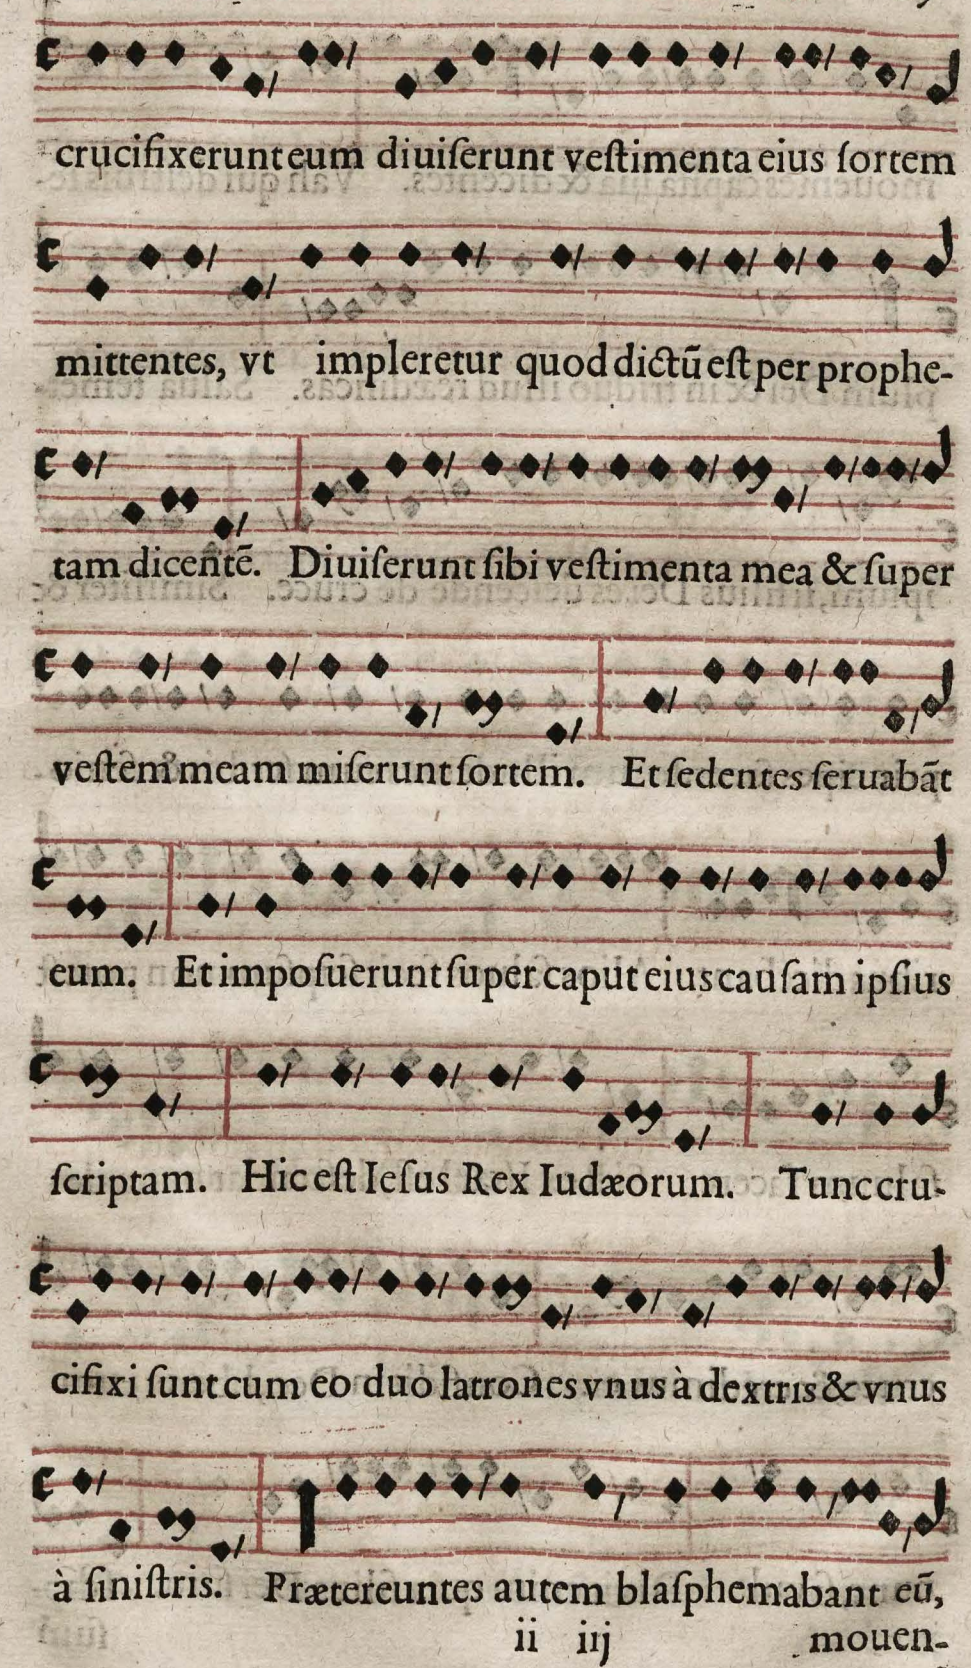 crucifixerunt eum diuiſerunt veſtimenta eius ſortem
mittentes, vt impleretur quod dictū eſt per prophe-
tam dicentē. Diuiſerunt ſibi veſtimenta mea & ſuper
veſtem meam miſerunt ſortem. Et ſedentes ſeruabāt
eum. Et impoſuerunt ſuper caput eius cauſam ipſius
ſcriptam. Hic eſt Ieſus Rex Iudæorum. Tunc cru-
cifixi ſunt cum eo duo latrones vnus à dextris & vnus
à ſiniſtris. Prætereuntes autem blaſphemabant eū,
ii iij mouen-